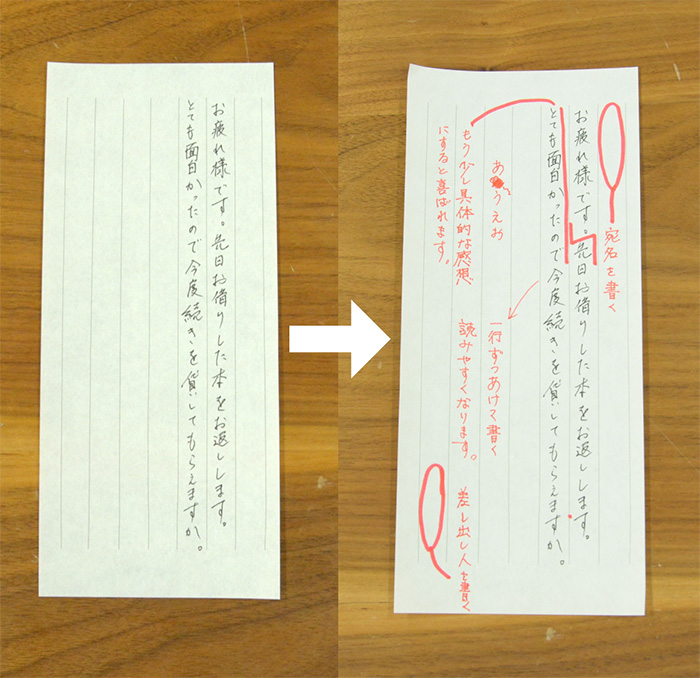 お疲れ様です。先日お借りした本をお返しします。
とても面白かったので今度続きを貸してもらえますか。
宛名を書く
お疲れ様です。先日お借りした本をお返しします。
とても面白かったので今度続きを貸してもらえますか。
一行ずつあけて書く
読みやすくなります。
あ うえお
もう少し具体的な感想
にすると喜ばれます。
差し出し人を書く